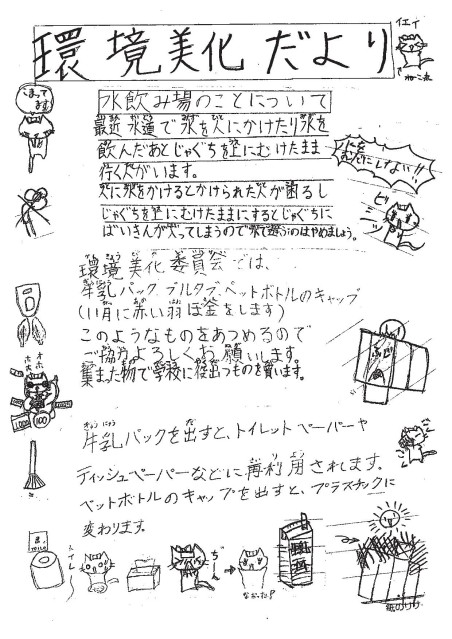 環境美化だより
イエイ
こまってます!
水飲み場のことについて
最近水道で水を人にかけたり水を
飲んだあとじゃぐちを上にむけたまま
行く人がいます。
人に水をかけるとかけられた人が困るし
じゃぐちを上にむけたままにするとじゃぐちに
ばいきんが入ってしまうので水で遊ぶのはやめましょう。
環境美化委員会では、
牛乳パック、プルタブ、ペットボトルのキャップ
(11月に赤い羽ぼ金をします)
このようなものをあつめるので
ご協力よろしくお願いします。
集まった物で学校に役立つものを買います。
オホ
100
ぎゅうにゅう
牛乳パックを出すと、トイレットペーパーや
ティッシュペーパーなどに再利用されます。
ペットボトルのキャップを出すと、プラスチックに
変わります。
トイレ
じーん